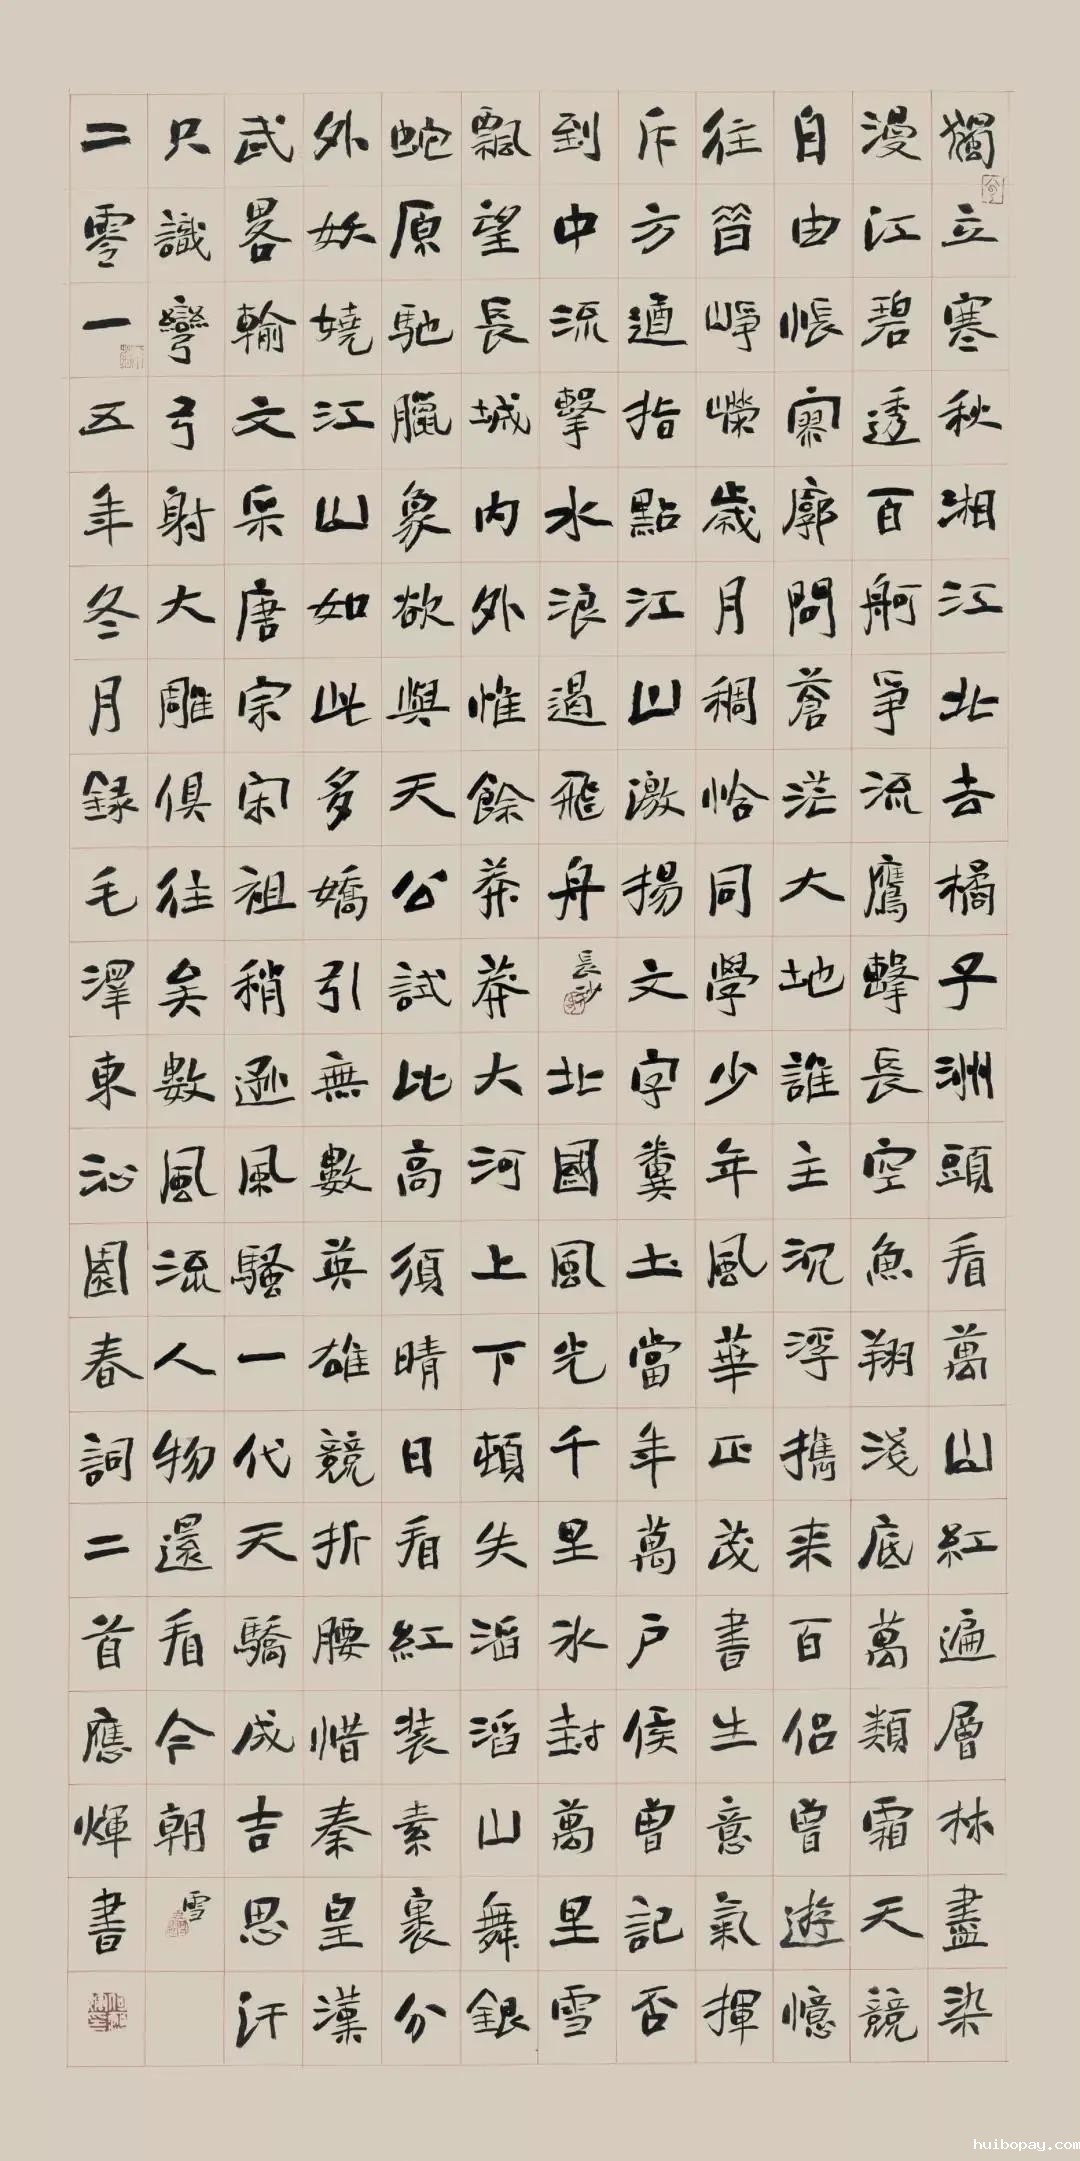 獨立寒秋湘江北去橘子洲頭看萬山紅遍層林盡染
漫江碧透百舸爭流鷹擊長空魚翔淺底萬類霜天競
自由悵寥廓問蒼茫大地誰主沉浮攜来百侣曾遊憶
往昔崢嶸歲月稠恰同學少年風華正茂書生意氣揮
斥方遒指點江山激揚文字糞土當年萬户侯曾記否
到中流擊水浪遏飛舟長沙北國風光千里冰封萬里雪
飄望長城内外惟餘莽莽大河上下頓失滔滔山舞銀
蛇原馳臘象欲與天公試比高須晴日看紅装素裹分
外妖嬈江山如此多嬌引無數英雄競折腰惜秦皇漢
武畧輸文采唐宗宋祖稍遜風騷一代天驕成吉思汗
只識彎弓射大雕俱往矣數風流人物還看今朝雪
二零一五年冬月録毛澤東沁園春詞二首應煇書
huibopay.com